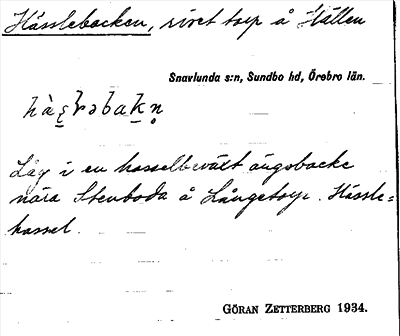 Hässlebacken, rivet torp å Hällen
Snavlunda s:n, Sundbo hd, Örebro län.
Låg i en hasselbeväxt ängsbacke
nära Stenboda å Långetorp. Hässle=
hassel.
GÖRAN ZETTERBERG 1934.